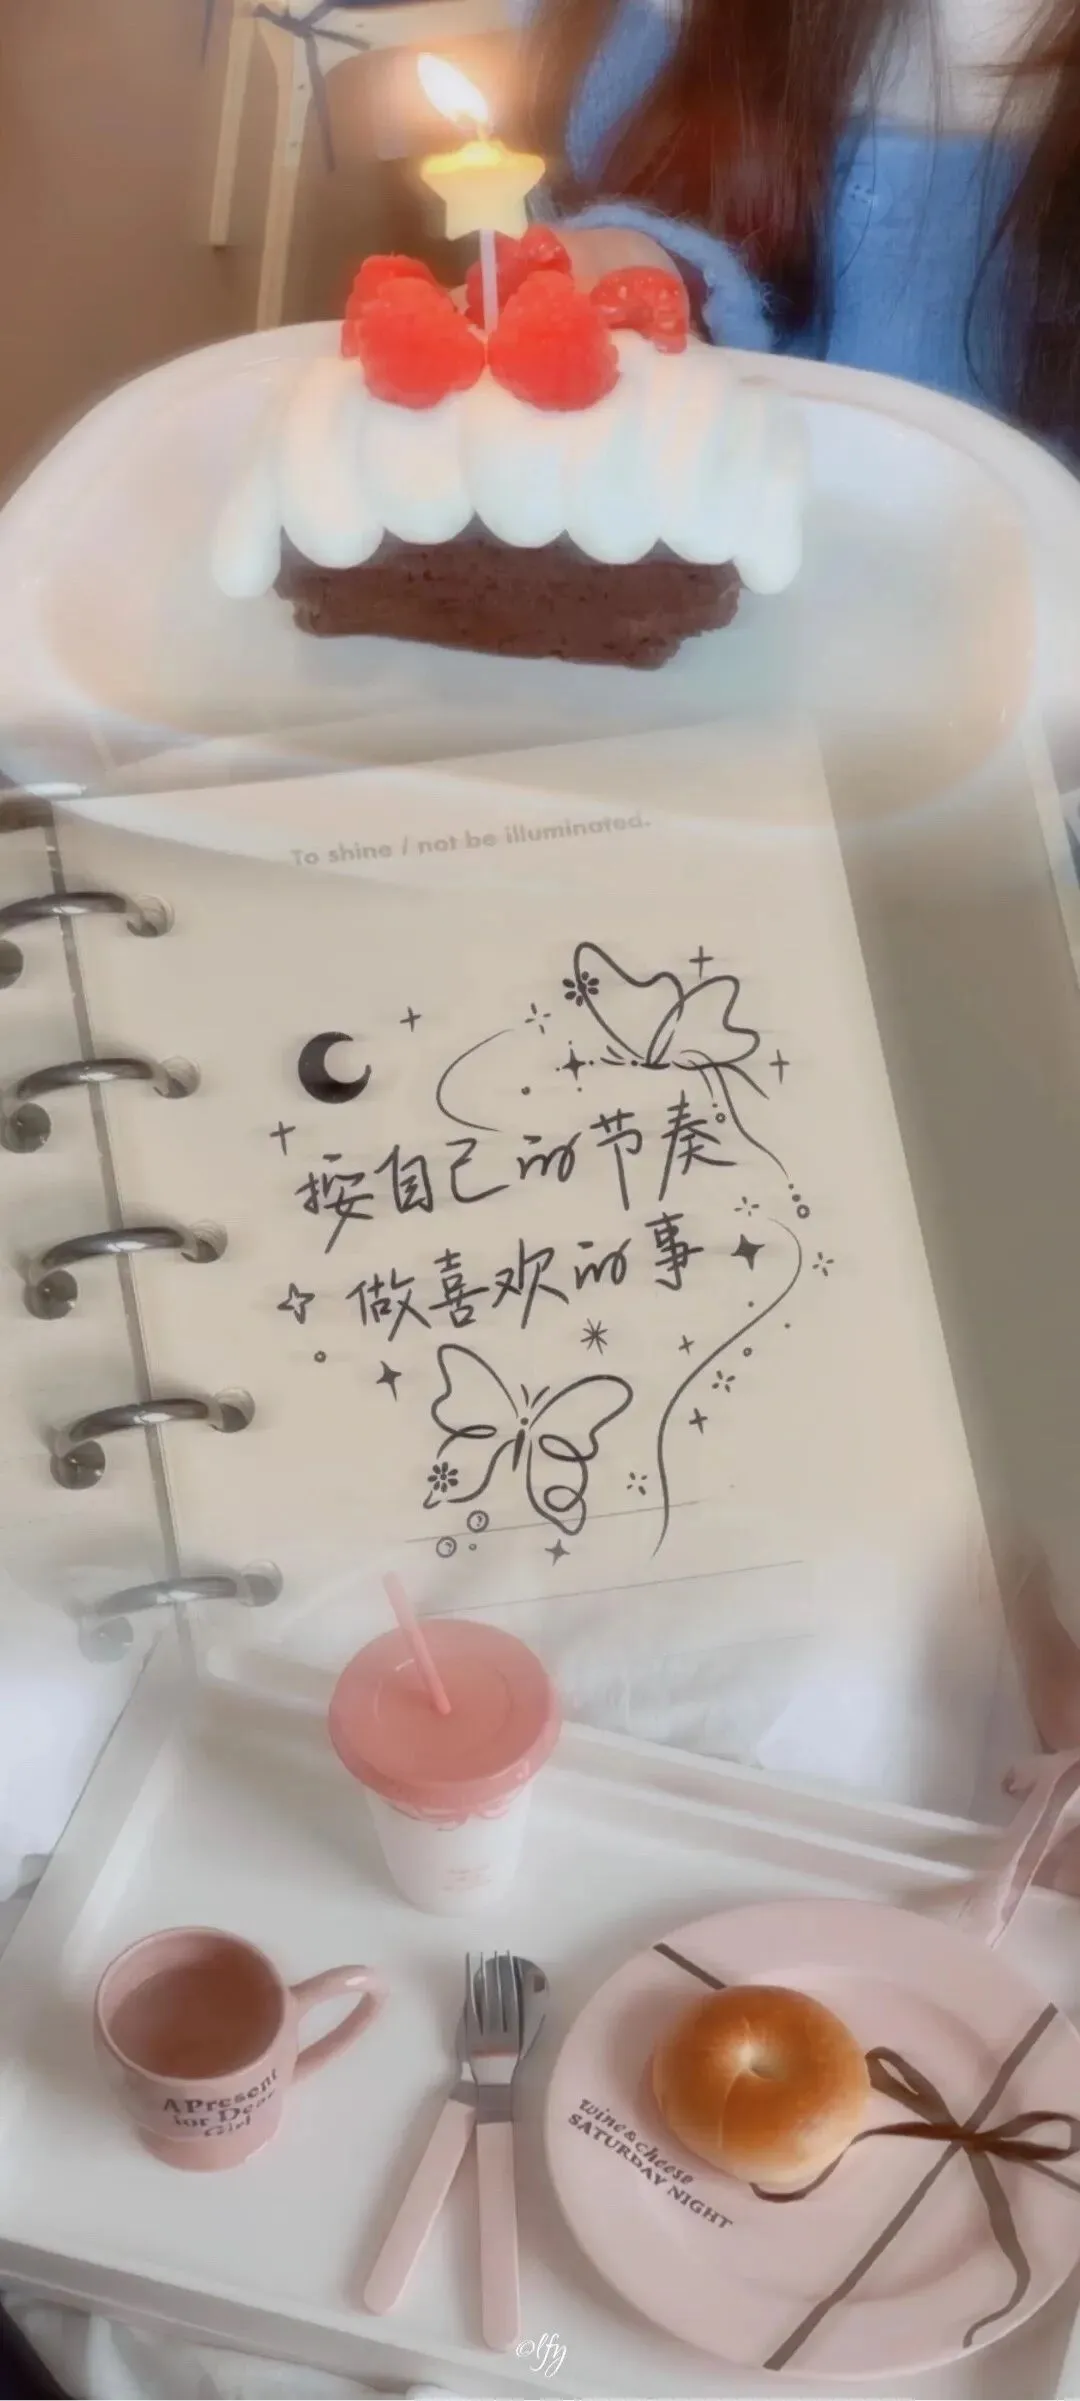 To shine / not be illuminated.
按自己的节奏
做喜欢的事
A Present
for Dear
Girl
wine&cheese
SATURDAY NIGHT
©lfy